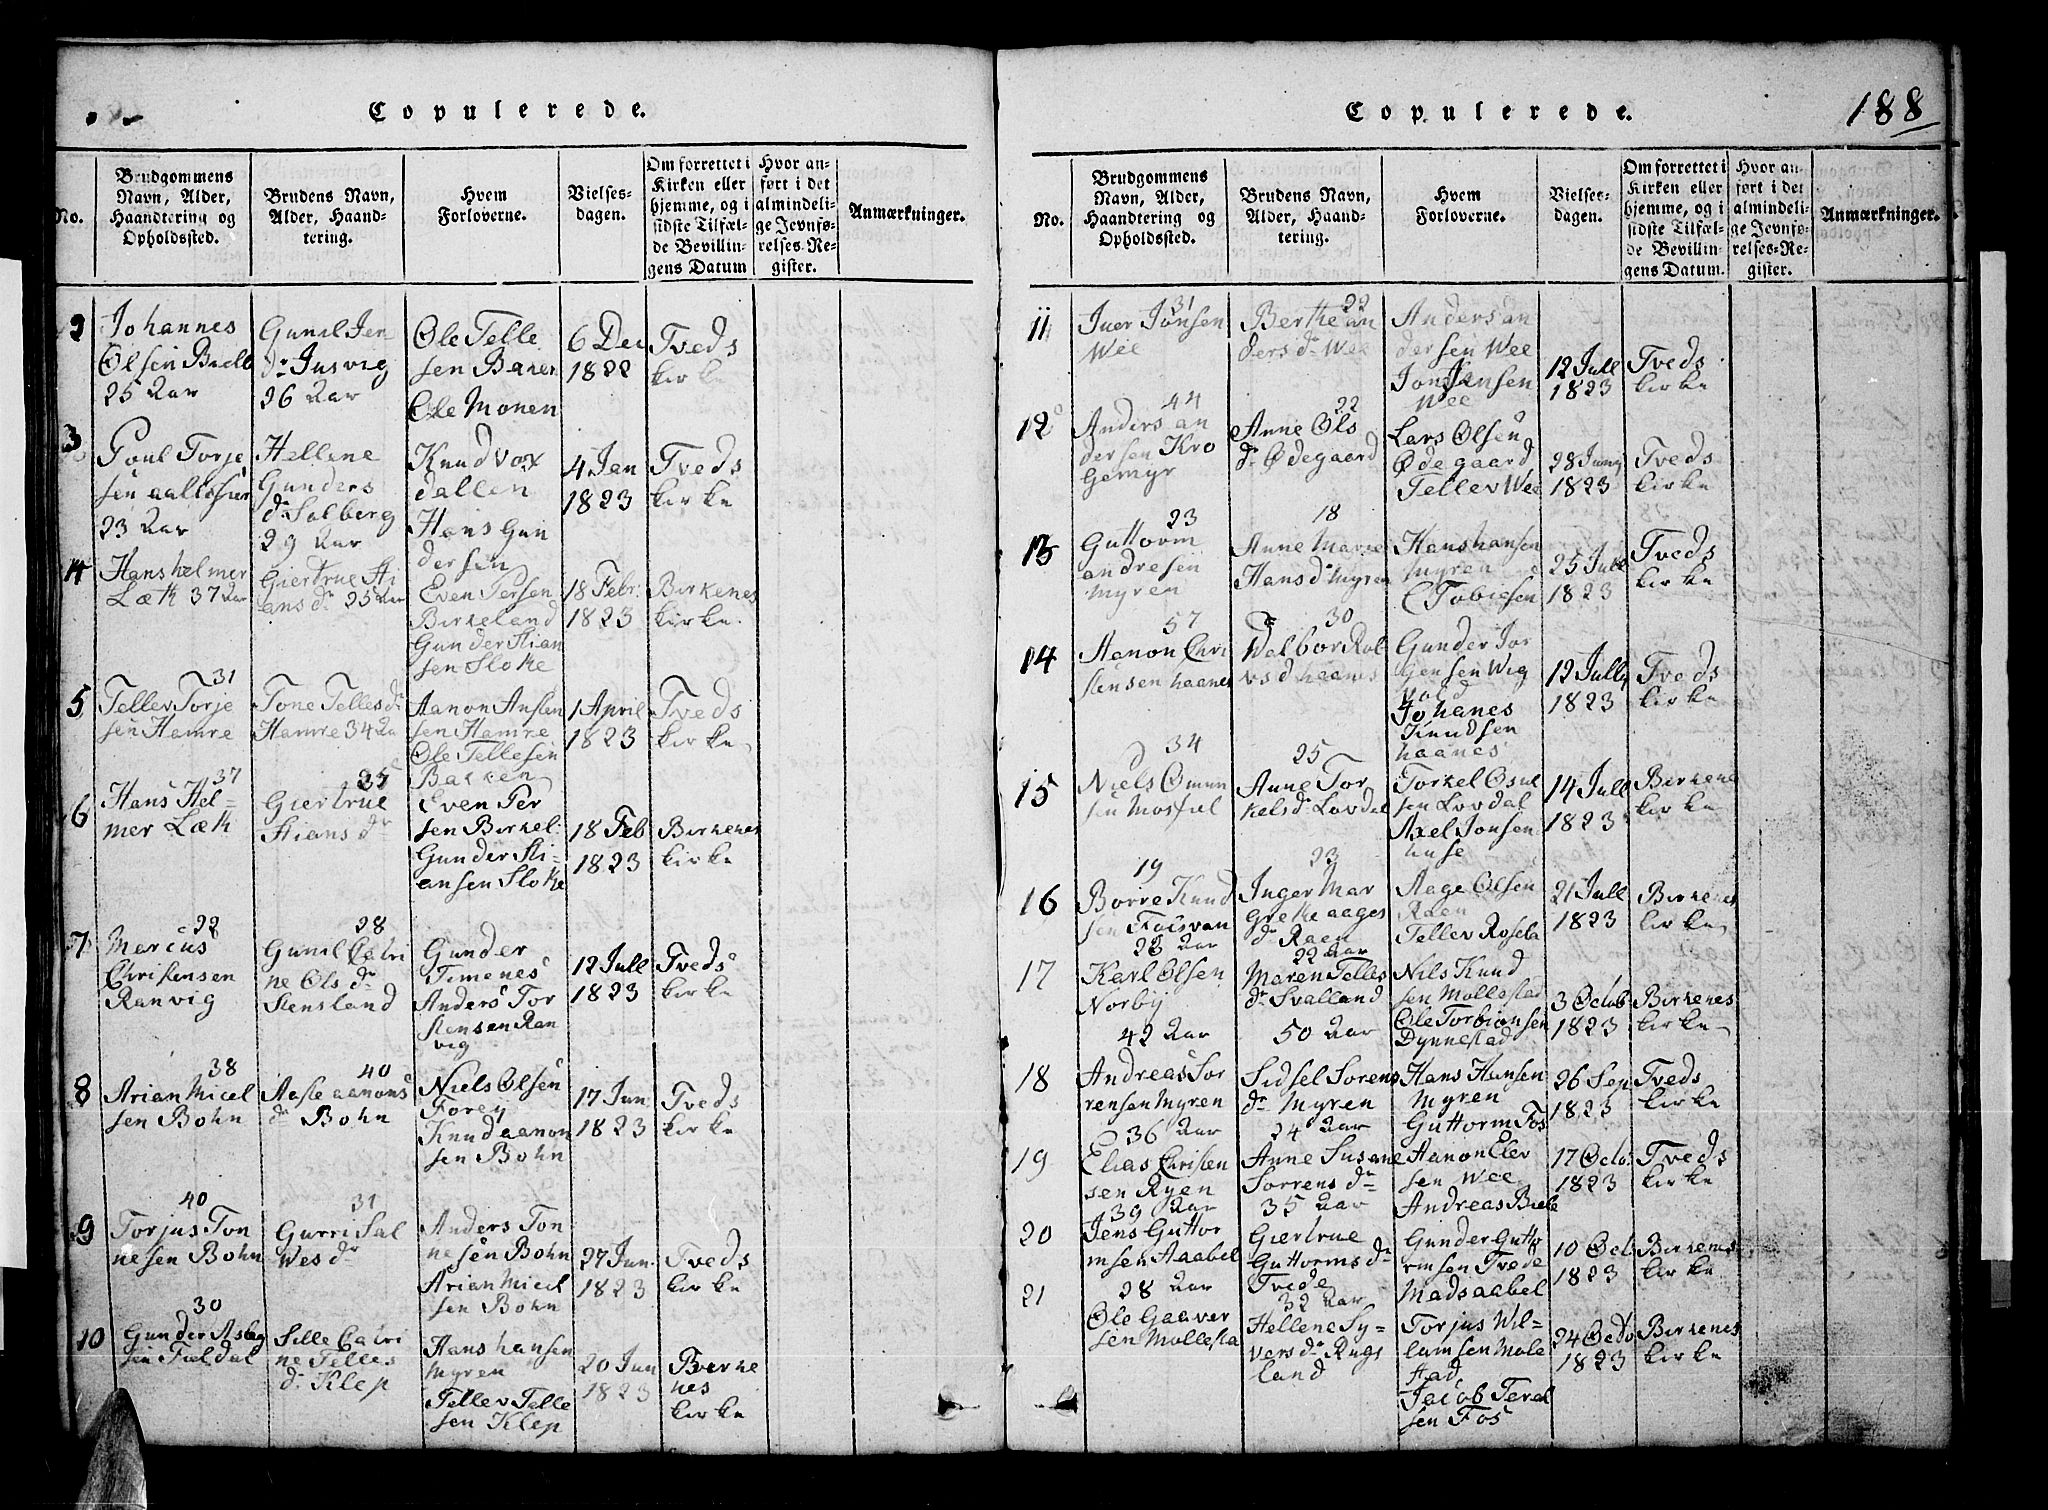 Copulerede.
No.
Brudgommens Navn, Alder, Haandtering og Opholdssted.
Brudens Navn, Alder, Haandtering.
Hvem Forloverne.
Vielsesdagen.
Om forrettet i Kirken eller hjemme, og i sidste Tilfælde Bevillingens Datum
Hvor anført i det almindelige Jevnførelses-Register.
Anmærkninger.
2
Johannes
Olsen
25 Aar
Gunil Jen
dr Jnsvig
26 Aar
Ole Telle
sen Baken
Ole Monen
6 Dec
1822
Tveds
kirke
3
Poul Torje
sen
23 Aar
Hellene
Gunders
dr Solberg
29 Aar
Knud vox
dallen
Hans Gun
dersen
4 Jan
1823
Tveds
kirke
4
Hans helmer
Læk 37 Aar
Giertrue Sti
ans dr 25 Aar
Even Persen
Birkeland
Gunder Stian
sen Sloke
18 Febr.
1823
Birkenes
kirke.
5
31
Tellev Torje
sen Hamre
Tone Telles dr
Hamre 34 Aa
Aanon Ansten
sen Hamre
Ole Tellesen
Bakken
1 April
1823
Tveds
kirke
6
37
Hans Hel=
mer Læk
25
Giertrue
Stians dr
Even Per
sen Birkel:
Gunder Sti-
ansen Sloke
18 Feb
1823
Birkenes
kirke
7
22
Marcus
Christensen
Ranvig
28
Gunil Catri
ne Ols dr
Stensland
Gunder
Timenes
Anders Tor
stensen Ran
vig
12 Jull
1823
Tveds
kirke
8
38
Arian Micel
sen Bohn
40
Aasle aanons
dr Bohn
Niels Olsen
Foreÿ
Knud aanon
sen Bohn
17 Jun
1823
Tveds
kirke
9
40
Torjus Ton
nesen Bohn
31
Gurri Sal
Wes dr
Anders Ton
nesen Bohn
Arian Micel
sen Bohn
27 Jun.
1823
Tveds
kirke
10
30
Gunder Aslag
sen Fieldal
Sille Catri
ne Telles
dr Klep
Hans hansen
Myren
Tellev Telle
sen Klep
20 Jun
1823
Birke
nes
kirke
Copulerede.
188
No.
Brudgommens Navn, Alder, Haandtering og Opholdssted.
Brudens Navn, Alder, Haandtering.
Hvem Forloverne.
Vielsesdagen.
Om forrettet i Kirken eller hjemme, og i sidste Tilfælde Bevillingens Datum.
Hvor anført i det almindelige Jevnførelses-Register.
Anmærkninger.
11
31
Iver Jonsen
Wee
22
Berthe an
ders dr Wee
Anders an
dersen Wee
Jon Jensen
Wee
12 Jull
1823
Tveds
kirke
12
44
Anders an
dersen Kro
gemyr
22
Anne Ols
dr Ødegaard
Lars Olsen
Ødegaard
Tellev Wee
28 Juny
1823
Tveds
kirke
13
23
Guttorm
andresen
myren
18
Anne Marie
Hans dr myren
Hans hansen
myren
C Tobiesen
25 Jull
1823
Tveds
kirke
14
57
Aanon Chri
stensen haanes
30
Valbor Rol
vsd haanes
Gunder Jor
gensen Wig
vold
Johanes
Knudsen
haanes
12 Jully
1823
Tveds
kirke
15
34
Niels Omun
sen Mosfiel
25
Anne Tor
kelsdr Lovdal
Torkel Osul
sen Lovdal
Axel Jonsen
huse
14 Jull
1823
Birkene
kirke
16
19
Borre Knud
sen
23
Inger Mar
grethe aages
dr Raen
Aage Olsen
Raen
Tellev
21 Jull
1823
Birkenes
kirke
17
28 Aar
Karl Olsen
Norby
22 Aar
Maren Telles
dr Svalland
Nils Knud
sen Mollestad
Ole Torbionsen
Dynnestad
3 Octob
1823
Birkenes
kirke
18
42 Aar
Andreas Sor
rensen Myren
50 Aar
Sidsel Sorens
dr Myren
Hans Hansen
Myren
Guttorm Fos
26 Sep
1823
Tveds
kirke
19
36 Aar
Elias Christen
sen Ryen
24 Aar
Anne Susane
Sorrens dr
Aanon Elev
sen Wee
Andreas
17 Octo.
1823
Tveds
kirke
20
39 Aar
Jens Guttor
msen Aabel
35 Aar
Giertrue
Guttorms dr
Tvede
Gunder Gutto
rmsen Tvede
Mads aabel
10 Oct.
1823
Birkenes
kirke
21
28 Aar
Ole Gaaver
sen Mollesta
32 Aar
Hellene Sy=
vers dr Rugs
land
Torjus Wil=
lumsen Mole
stad
Jacob Teral
sen Fos
24 Octo
1823
Birkenes
kirke